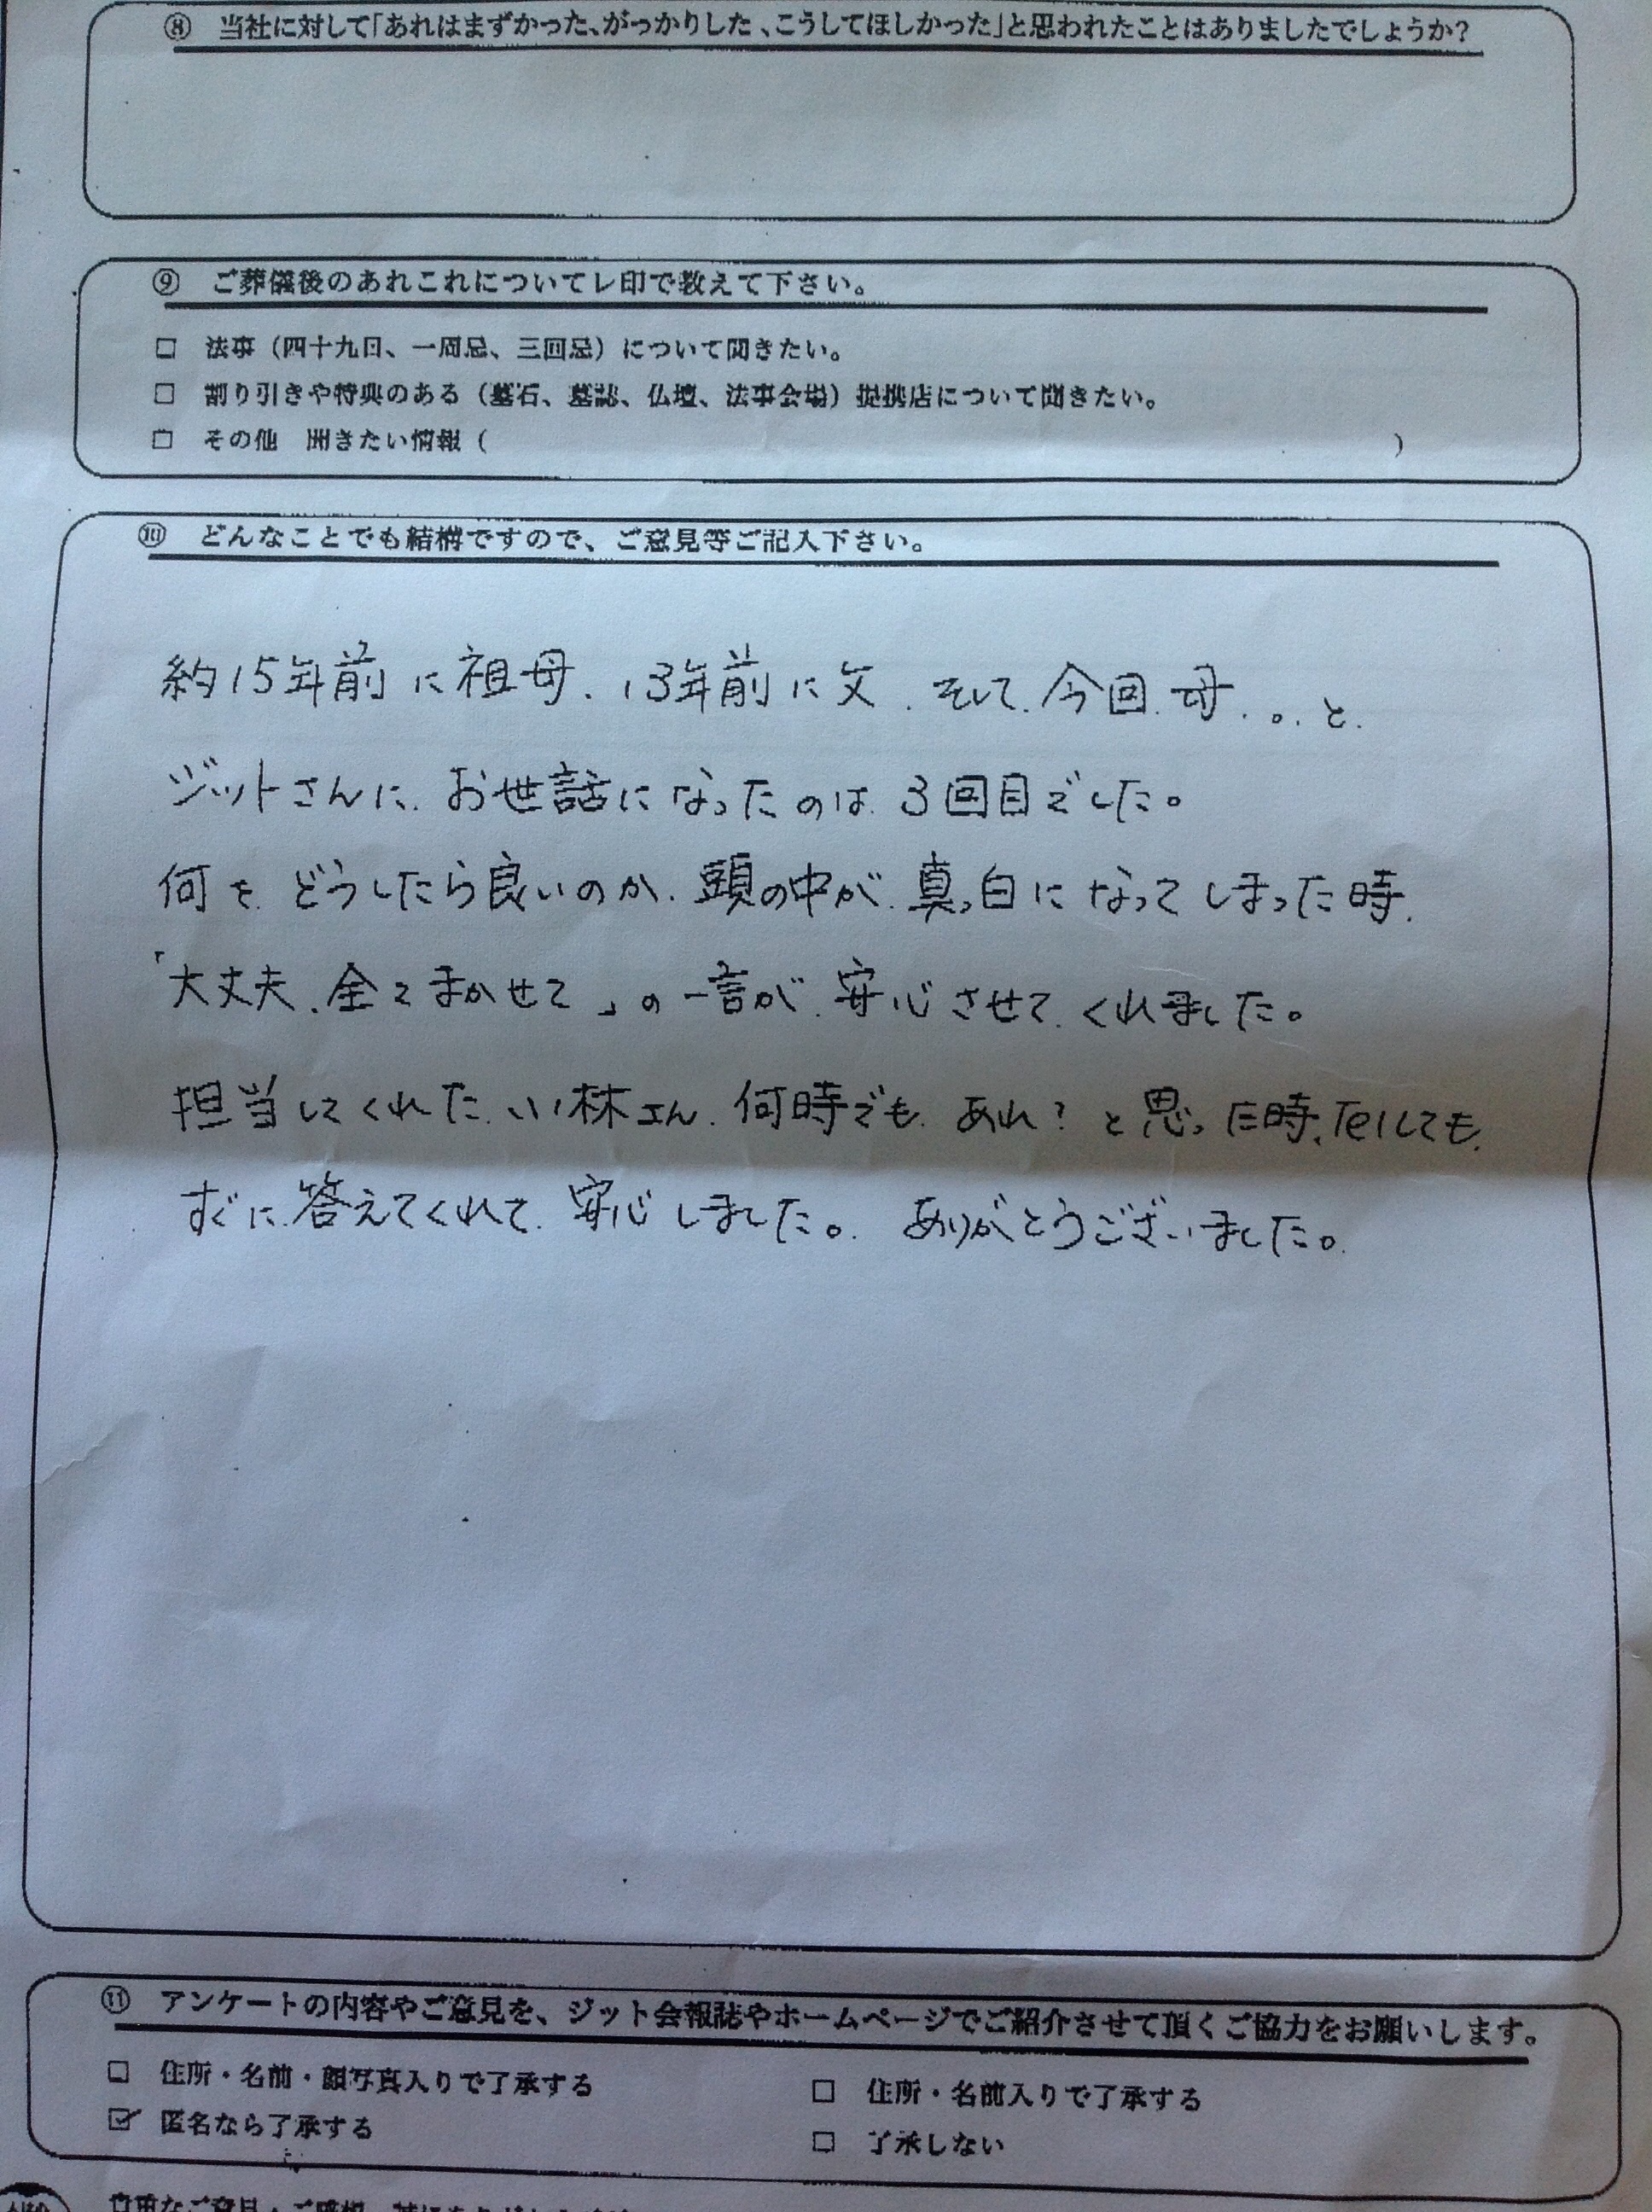 ⑧ 当社に対して「あれはまずかった、がっかりした、こうしてほしかった」と思われたことはありましたでしょうか?
⑨ ご葬儀後のあれこれについてレ印で教えて下さい。
□ 法事（四十九日、一周忌、三回忌）について聞きたい。
□ 割り引きや特典のある（墓石、墓誌、仏壇、法事会場）提携店について聞きたい。
□ その他 聞きたい情報（ ）
⑩ どんなことでも結構ですので、ご意見等ご記入下さい。
約15年前に祖母、13年前に父、そして、今回、母、。、と、
ジットさんに、お世話になったのは、3回目でした。
何を、どうしたら良いのか、頭の中が、真っ白になってしまった時、
「大丈夫、全てまかせて」の一言が、安心させて、くれました。
担当してくれた、小林さん、何時でも、あれ?と思った時、Telしても、
すぐに、答えてくれて、安心しました。ありがとうございました。
⑪ アンケートの内容やご意見を、ジット会報誌やホームページでご紹介させて頂くご協力をお願いします。
□ 住所・名前・顔写真入りで了承する □ 住所・名前入りで了承する
☑ 匿名なら了承する □ 了承しない